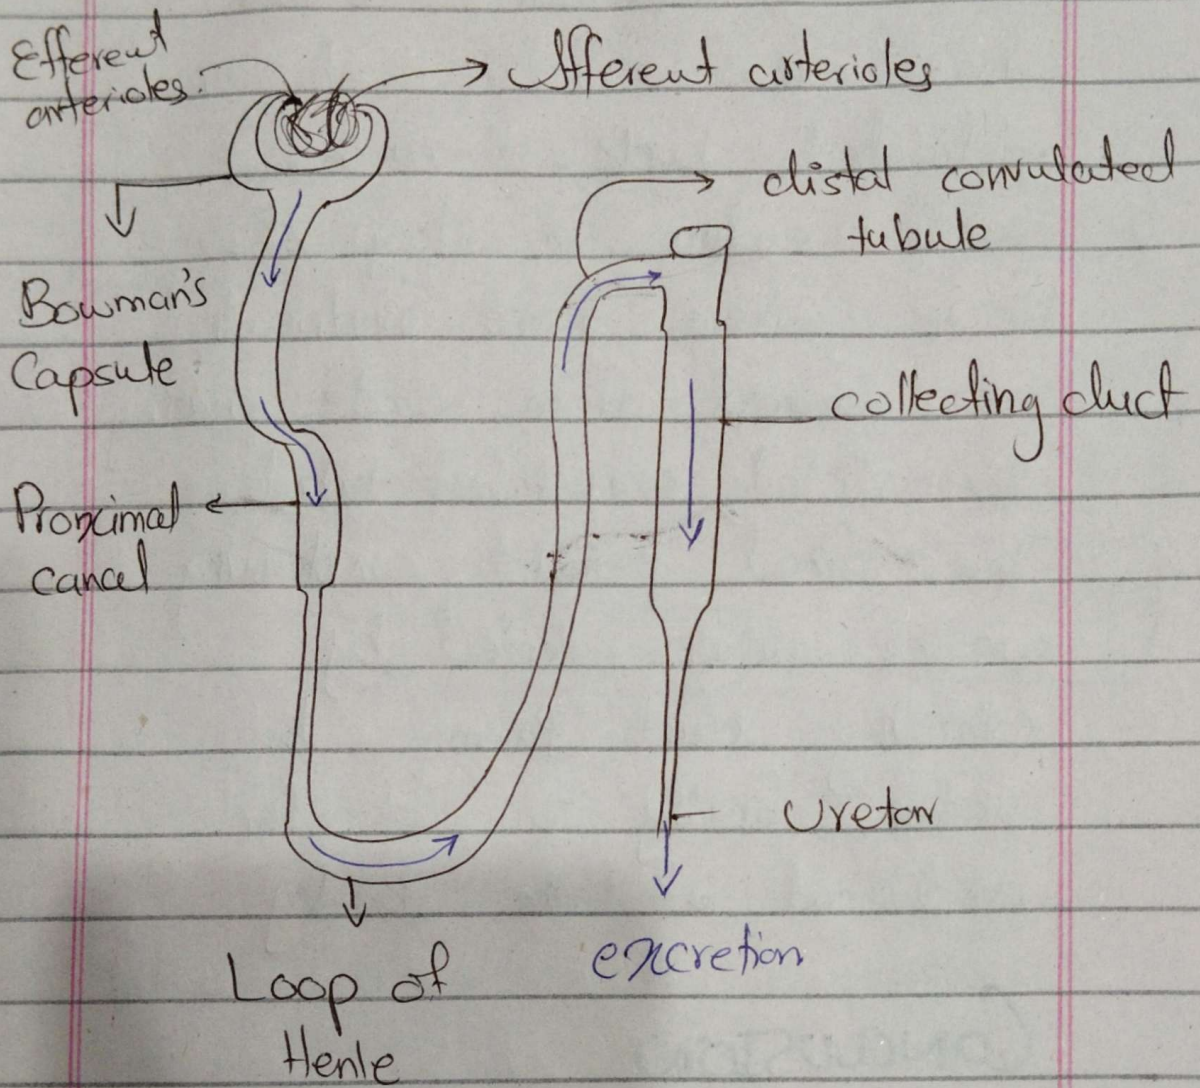 Efferent
arterioles.
Afferent arterioles
distal convulated
tubule
Bowman's
Capsule
collecting duct
Proximal
canal
Ureton
excretion
Loop of
Henle
CONCLUSION